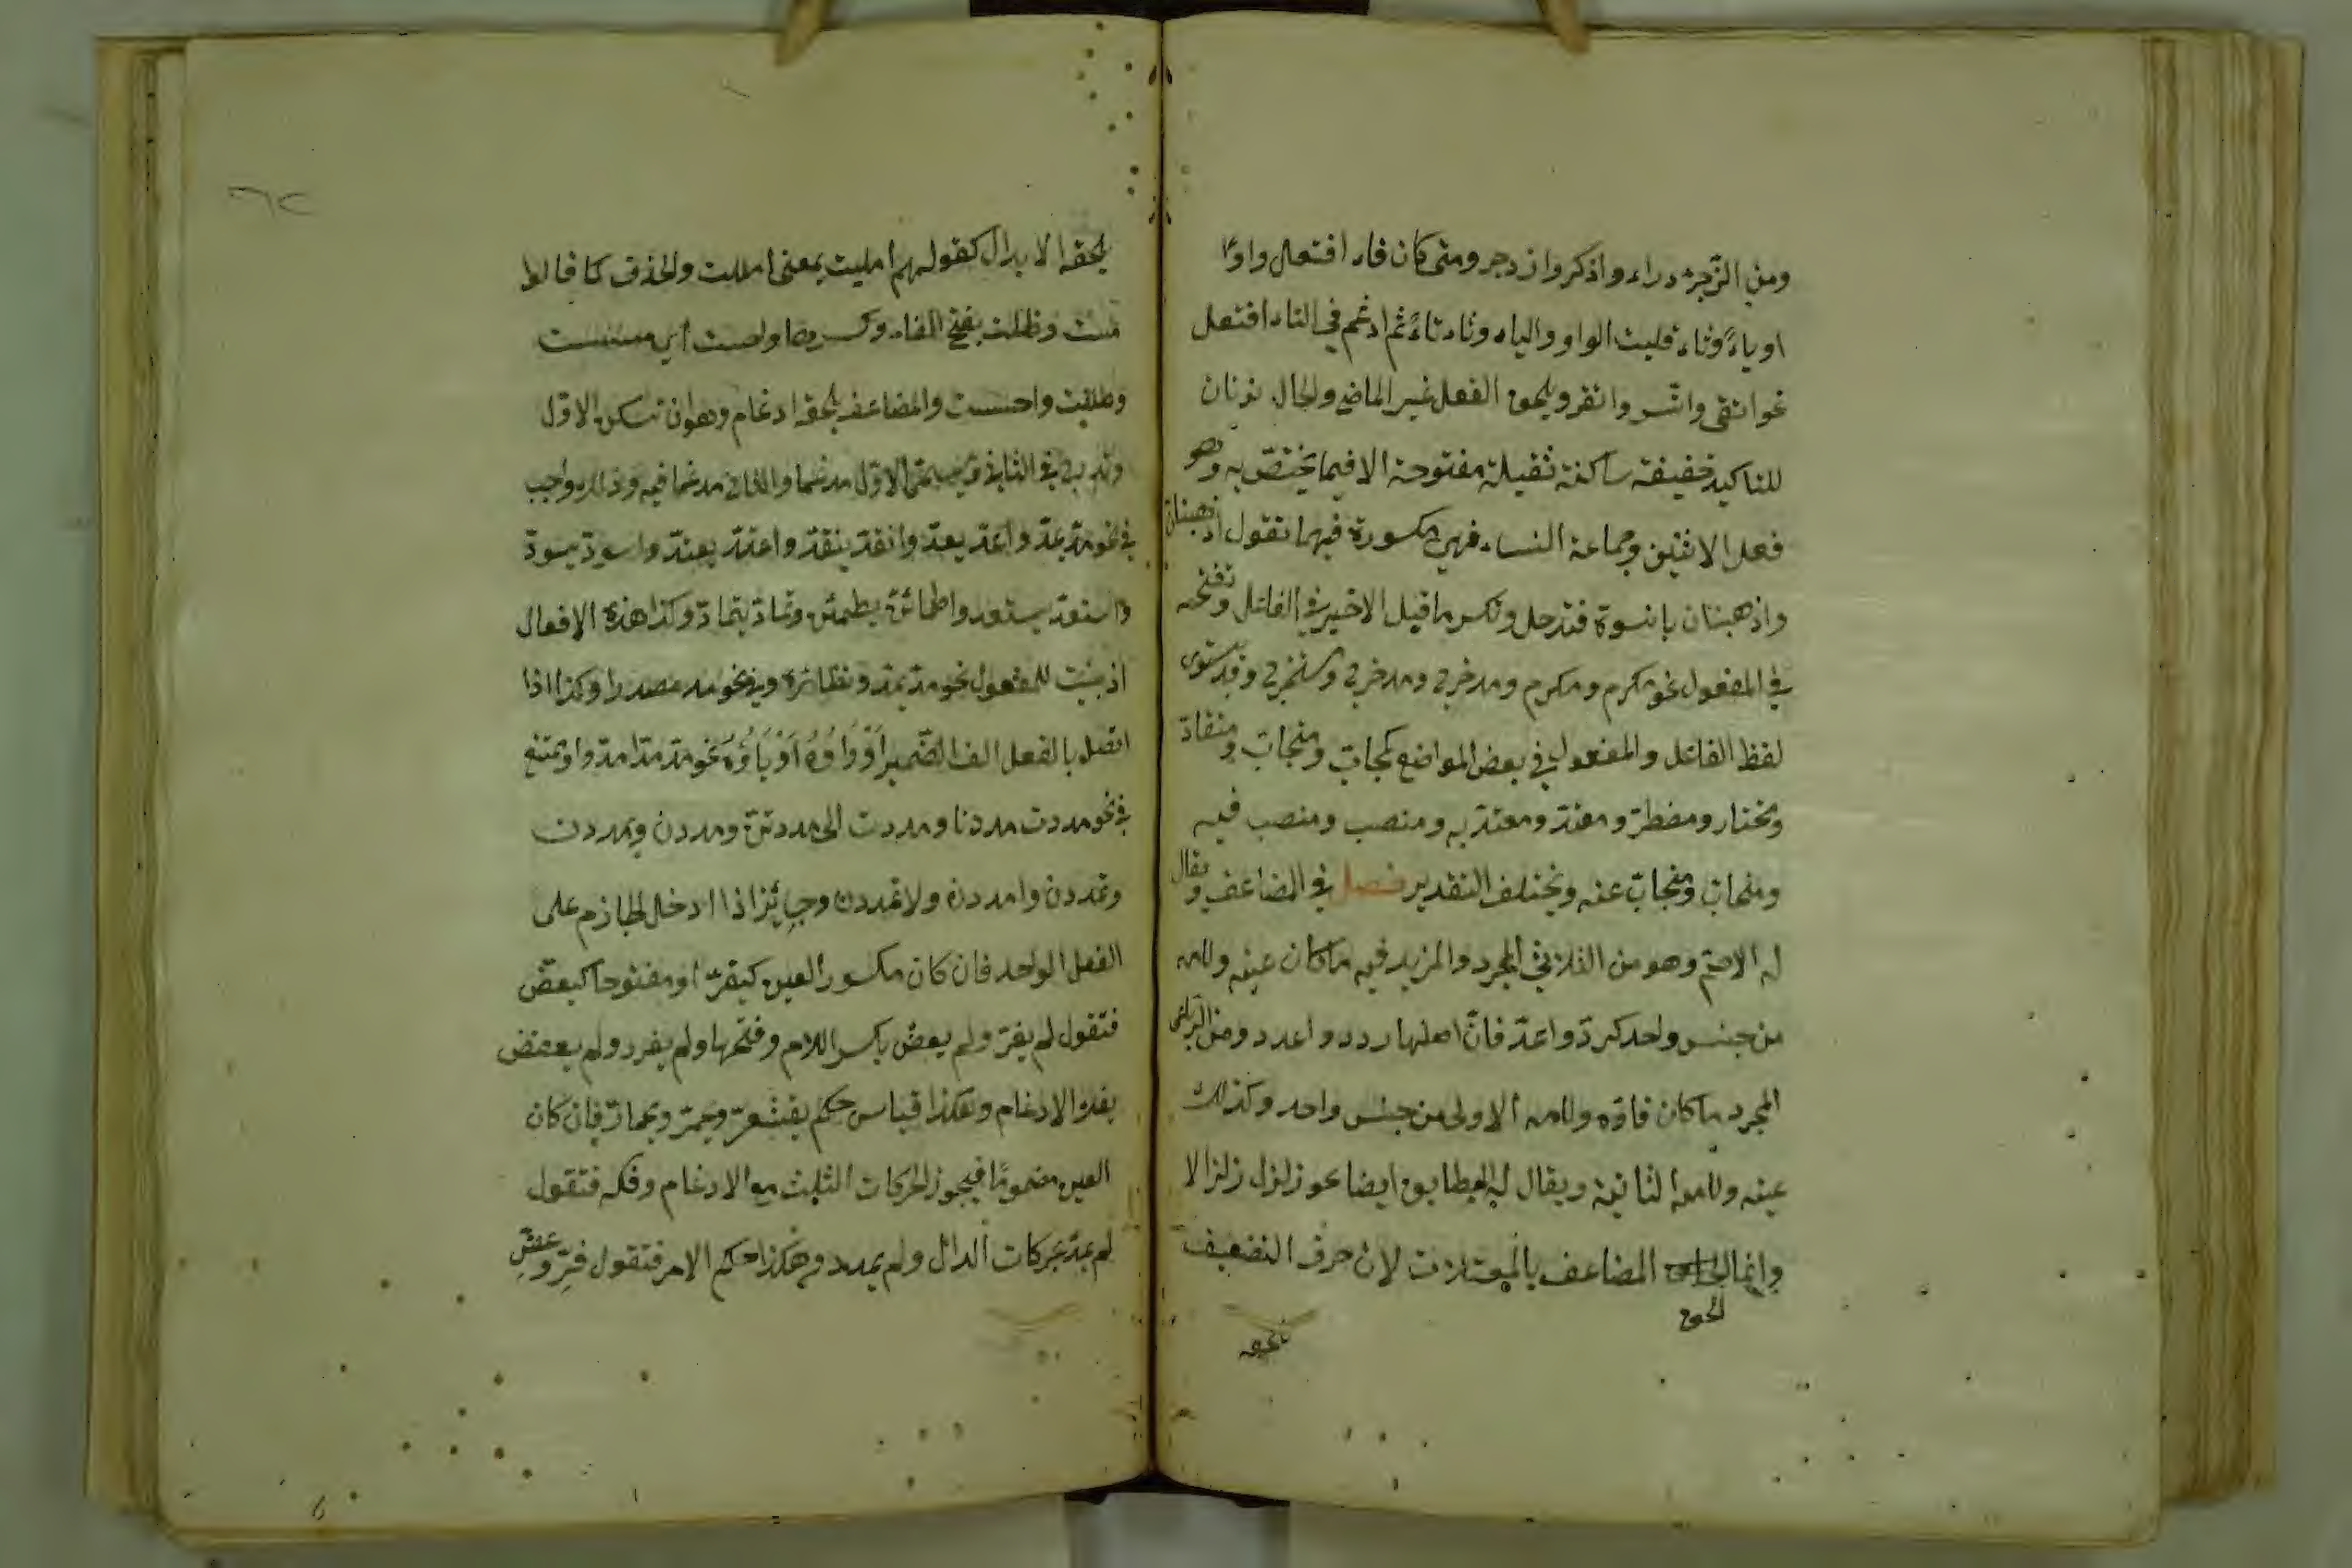 ومن الزجرة دراء واذكر وازدجر ومتى كان فاء افتعل واوًا
او ياءً وثاء قلبت الواو والياء وثاء تاءً ثم ادغم في التاء افتعل
نحو اتقى واتسر واتغر ويلحق الفعل غير الماضي والحال نونان
للتاكيد خفيفة ساكنة ثقيلة مفتوحة الا فيما يختصّ به وهو
فعل الاثنين وجماعة النساء فهي مكسورة فيهما تقول اذهبنان
واذهبنان يا نسوة وتكسر ما قبل الاخير في الفاعل وتفتحه
في المفعول نحو مكرم ومكرم ومدخرج ومدخرج ومستخرج وقد يستوى
لفظ الفاعل والمفعول في بعض المواضع كمجاب ومنجاب ومنقاد
ومختار ومضطرّ ومعتدّ ومعتدّ به ومنصب ومنصب فيه
ومنجاب ومنجاب عنه ويختلف التقدير فصل في المضاعف ويقال
له الاصم وهو من الثلاثي المجرد والمزيد فيه ما كان عينه ولامه
من جنس واحد كردّ واعدّ فانّ اصلها ردد واعدد ومن الرباعى
المجرد ما كان فاؤه ولامه الاولى من جنس واحد وكذلك
عينه ولامه الثانية ويقال له المطابق ايضا نحو زلزل زلزالا
وانما المضاعف بالمعتلات لان حرف التضعيف
الحق
يلحقه
٦٢
يلحقه الابدال كقولهم امليت بمعنى امللت والحذف كما قالوا
مست وظلت بفتح الفاء وكسرها واحست أي مسست
وظللت واحسست والمضاعف يلحقه ادغام وهو ان تسكن الاوّل
وتدرج في الثاني ويسمّى الاوّل مدغما والثاني مدغما فيه وذلك واجب
في نحو مدّ يمدّ واعدّ يعدّ وانقدّ ينقدّ واعتدّ يعتدّ واسودّ يسودّ
واستعدّ يستعد واطمانّ يطمئن وتمادّ يتمادّ وكذا هذه الافعال
اذ بنيت للمفعول نحو مدّ يمدّ ونظائره وفي نحو مد مصدرا وكذا اذا
اتصل بالفعل الف الضّمير أَوْ وَاوُهُ أَوْ يَاؤُهُ نحو مدّ مدّا مدّوا ويمتنع
في نحو مددت مددنا ومددت الى مددتنّ ومددن ويمددن
وتمددن وامددن ولا تمددن وجائز اذا ادخل الجازم على
الفعل الواحد فان كان مكسور العين كيفرّ او مفتوحا كيعضّ
فتقول لم يفرّ ولم يعضّ بكسر اللام وفتحها ولم يفرر ولم يعضض
بفك الادغام وهكذا قياس حكم يقشعرّ ويحمرّ ويحمارّ فان كان
العين مضمومًا فيجوز الحركات الثلث مع الادغام وفكه فتقول
لم يمدّ بحركات الدال ولم يمدد وهكذا حكم الامر فتقول فِرِّ وعضِّ